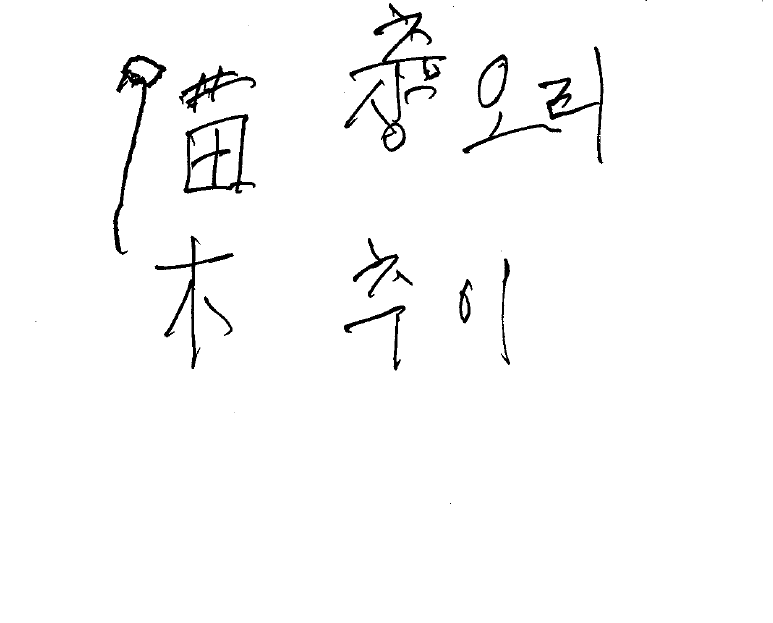 苗 종오리
木 추이